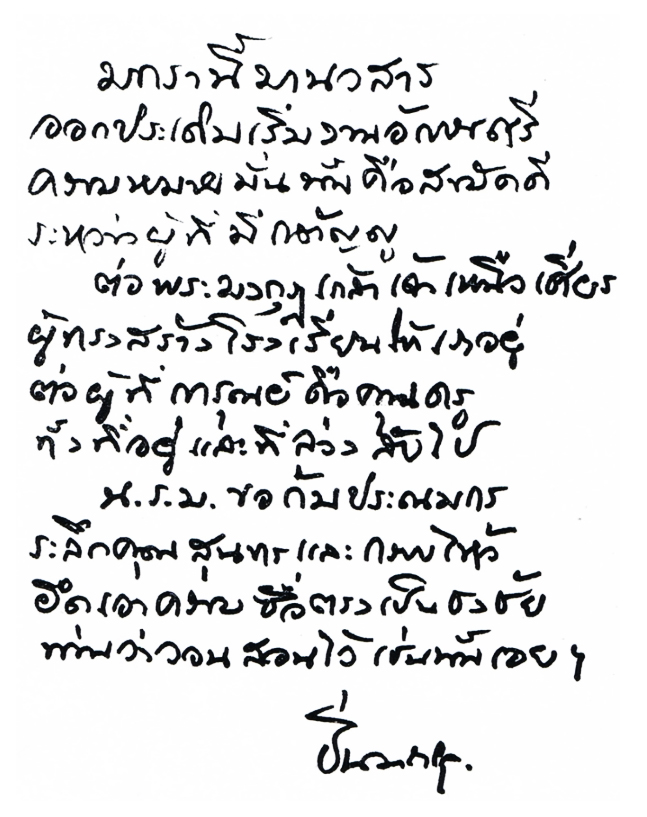 มกรานี้มานวสาร
ออกประเดิมเริ่มงานอักษรศรี
ความหมายมั่นนั้นคือสามัคคี
ระหว่างผู้ที่มีกตัญญู
ต่อพระมงกุฎเกล้าเจ้าเหนือเศียร
ผู้ทรงสร้างโรงเรียนให้เราอยู่
ต่อผู้ที่การุณย์คือคุณครู
ทั้งที่อยู่และที่ล่วงลับไป
น.ร.ม. ขอก้มประณมกร
ระลึกคุณสุนทรและกราบไหว้
ยึดเอาความซื่อตรงเป็นธงชัย
ท่านว่าวอนสอนไว้เช่นนั้นเอย ฯ